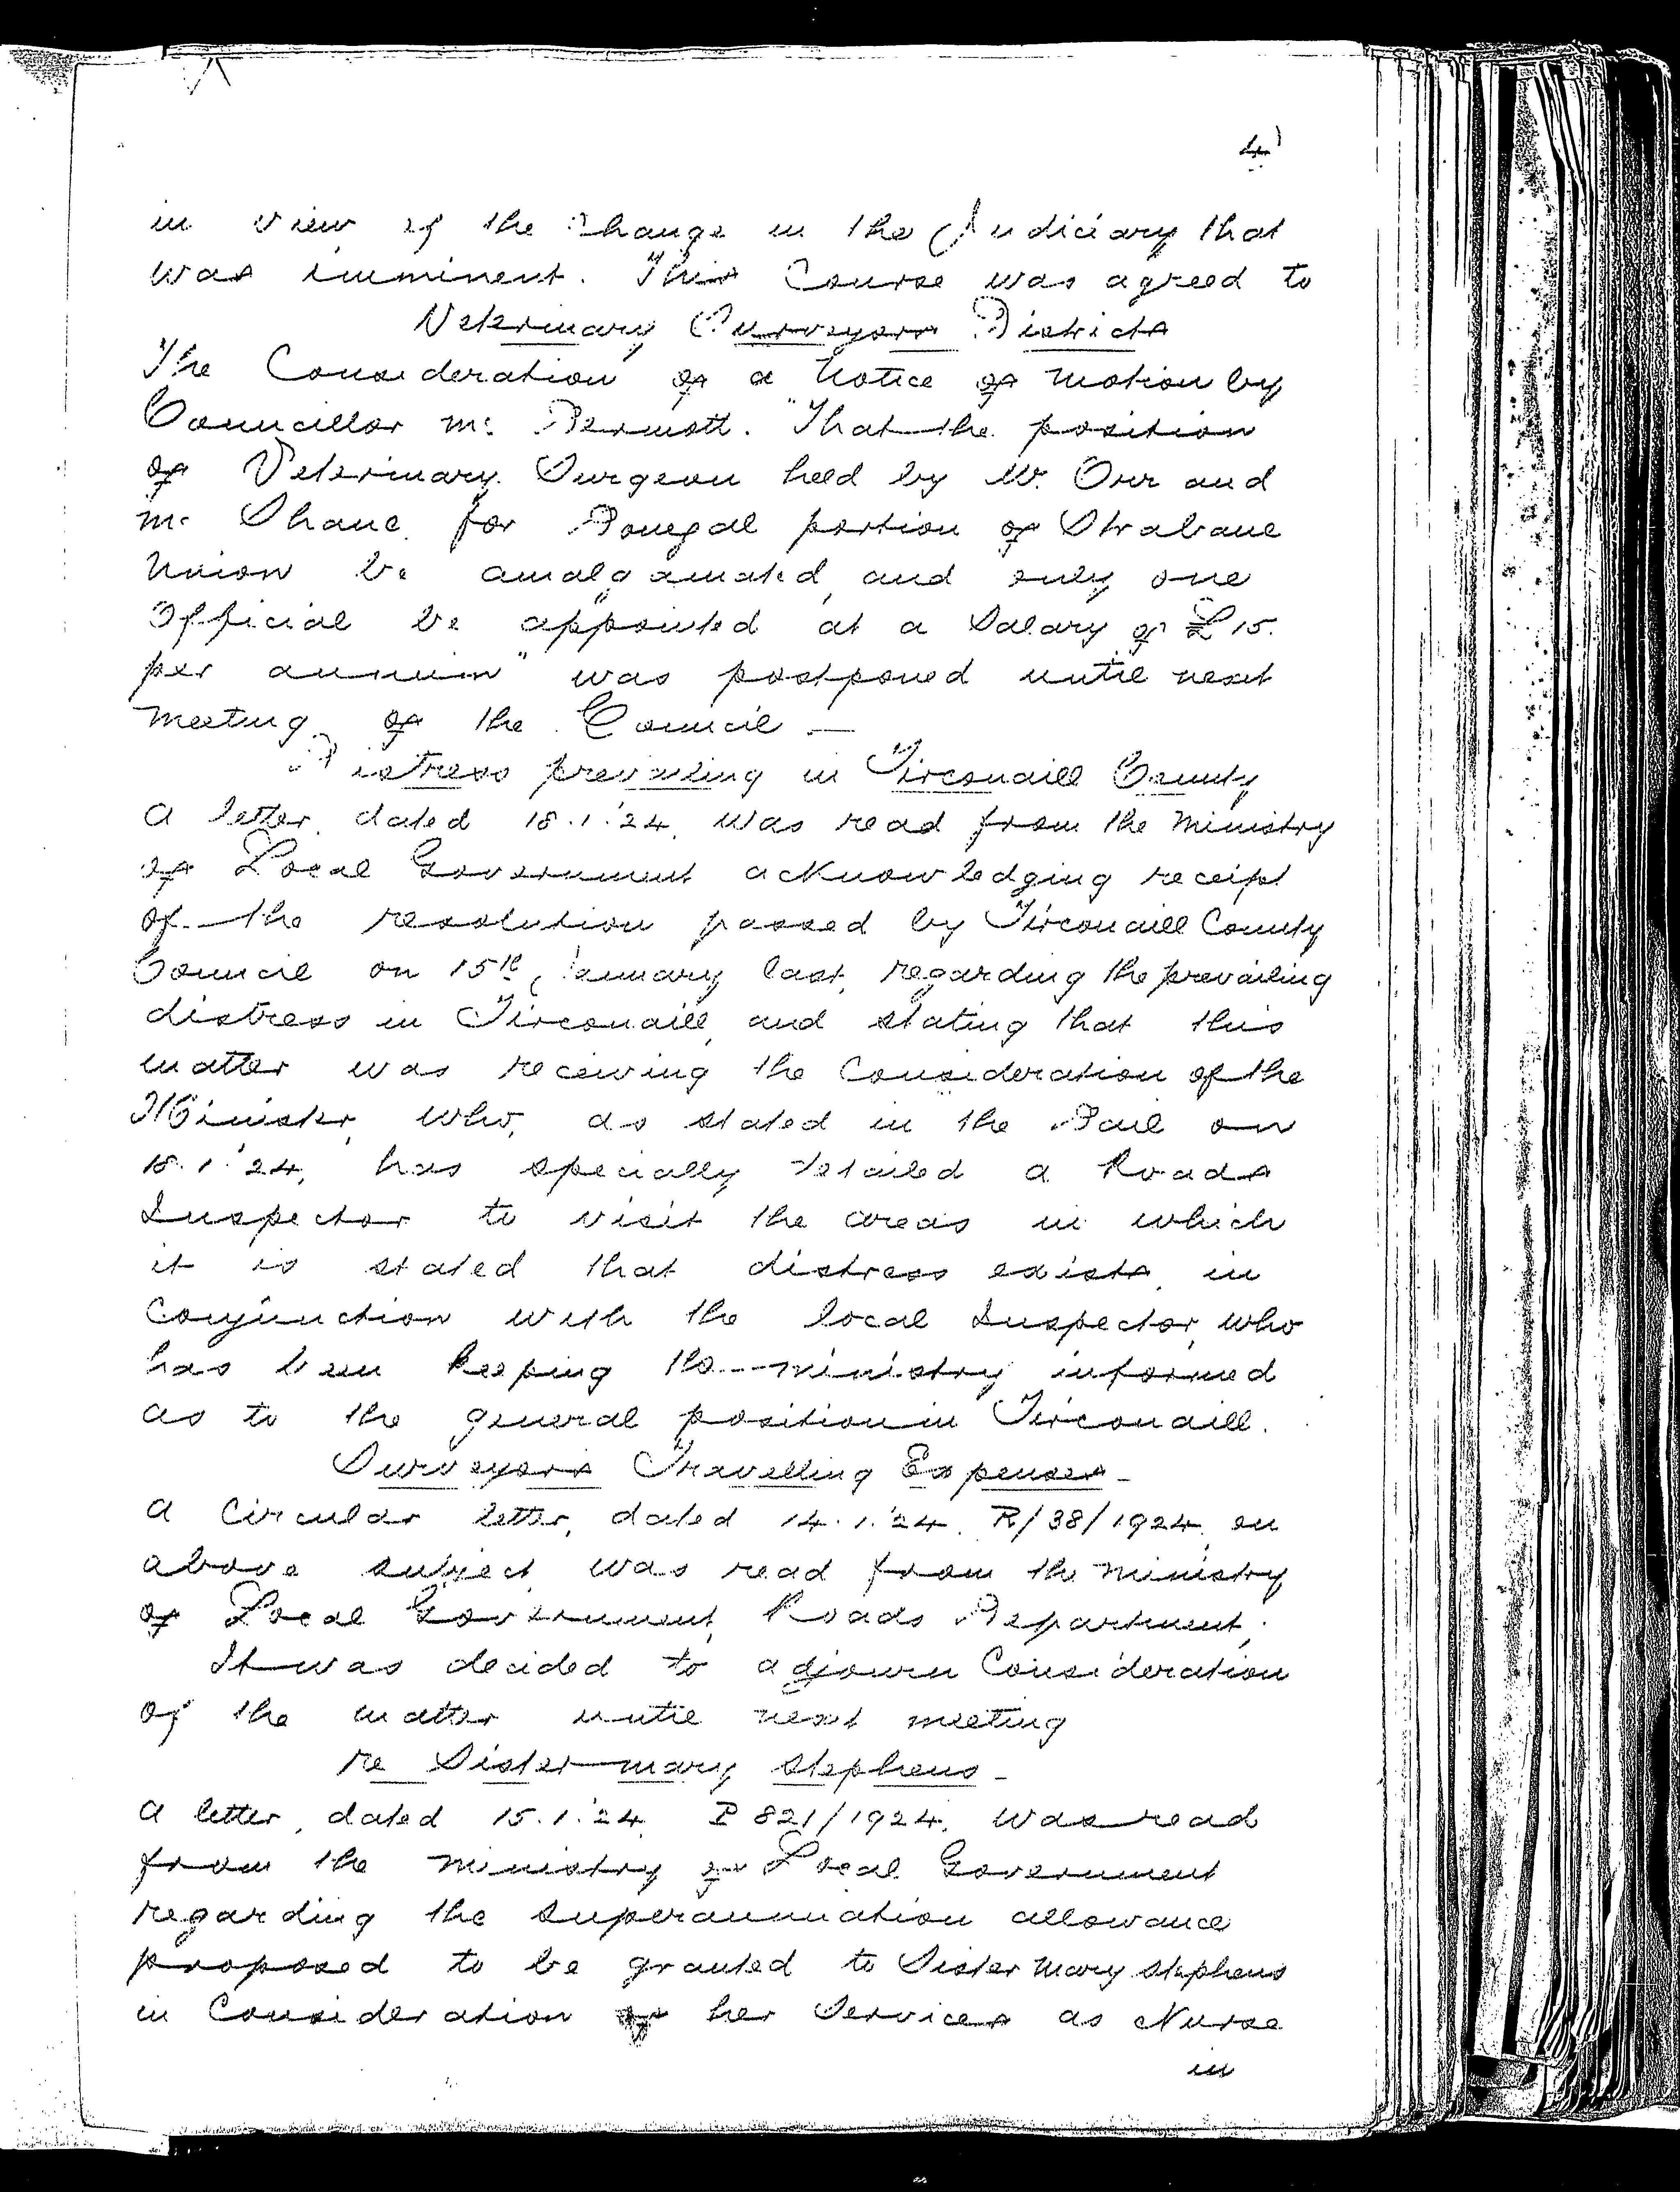 4)
in view of the change in the Judiciary that
was imminent. This Course was agreed to
Veterinary Surveyors Districts
The Consideration of a Notice of Motion by
Councillor Mc Dermott. "That the position
of Veterinary Surgeon held by Mr. Orr and
Mc Shane for Donegal portion of Strabane
Union be amalgamated, and only one
Official be appointed at a Salary of £15.
per annum" was postponed until next
meeting of the Council —
Distress prevailing in Tirconaill County
A letter, dated 18.1.'24, was read from the Ministry
of Local Government acknowledging receipt
of the resolution passed by Tirconaill County
Council on 15th January last, regarding the prevailing
distress in Tirconaill, and stating that this
matter was receiving the Consideration of the
Minister, who, as stated in the Dail on
18.1.'24, has specially detailed a Roads
Inspector to visit the areas in which
it is stated that distress exists, in
Conjunction with the local Inspector, who
has been keeping the ministry informed
as to the general position in Tirconaill.
Surveyors Travelling Expenses -
A Circular letter, dated 14.1.'24, R/38/1924, on
above subject, was read from the Ministry
of Local Government, Roads Department,
It was decided to adjourn Consideration
of the matter until next meeting
re Sister Mary Stephens -
A letter, dated 15.1.'24. P 821/1924, was read
from the Ministry of Local Government
regarding the superannuation allowance
proposed to be granted to Sister Mary Stephens
in Consideration of her Services as Nurse
in